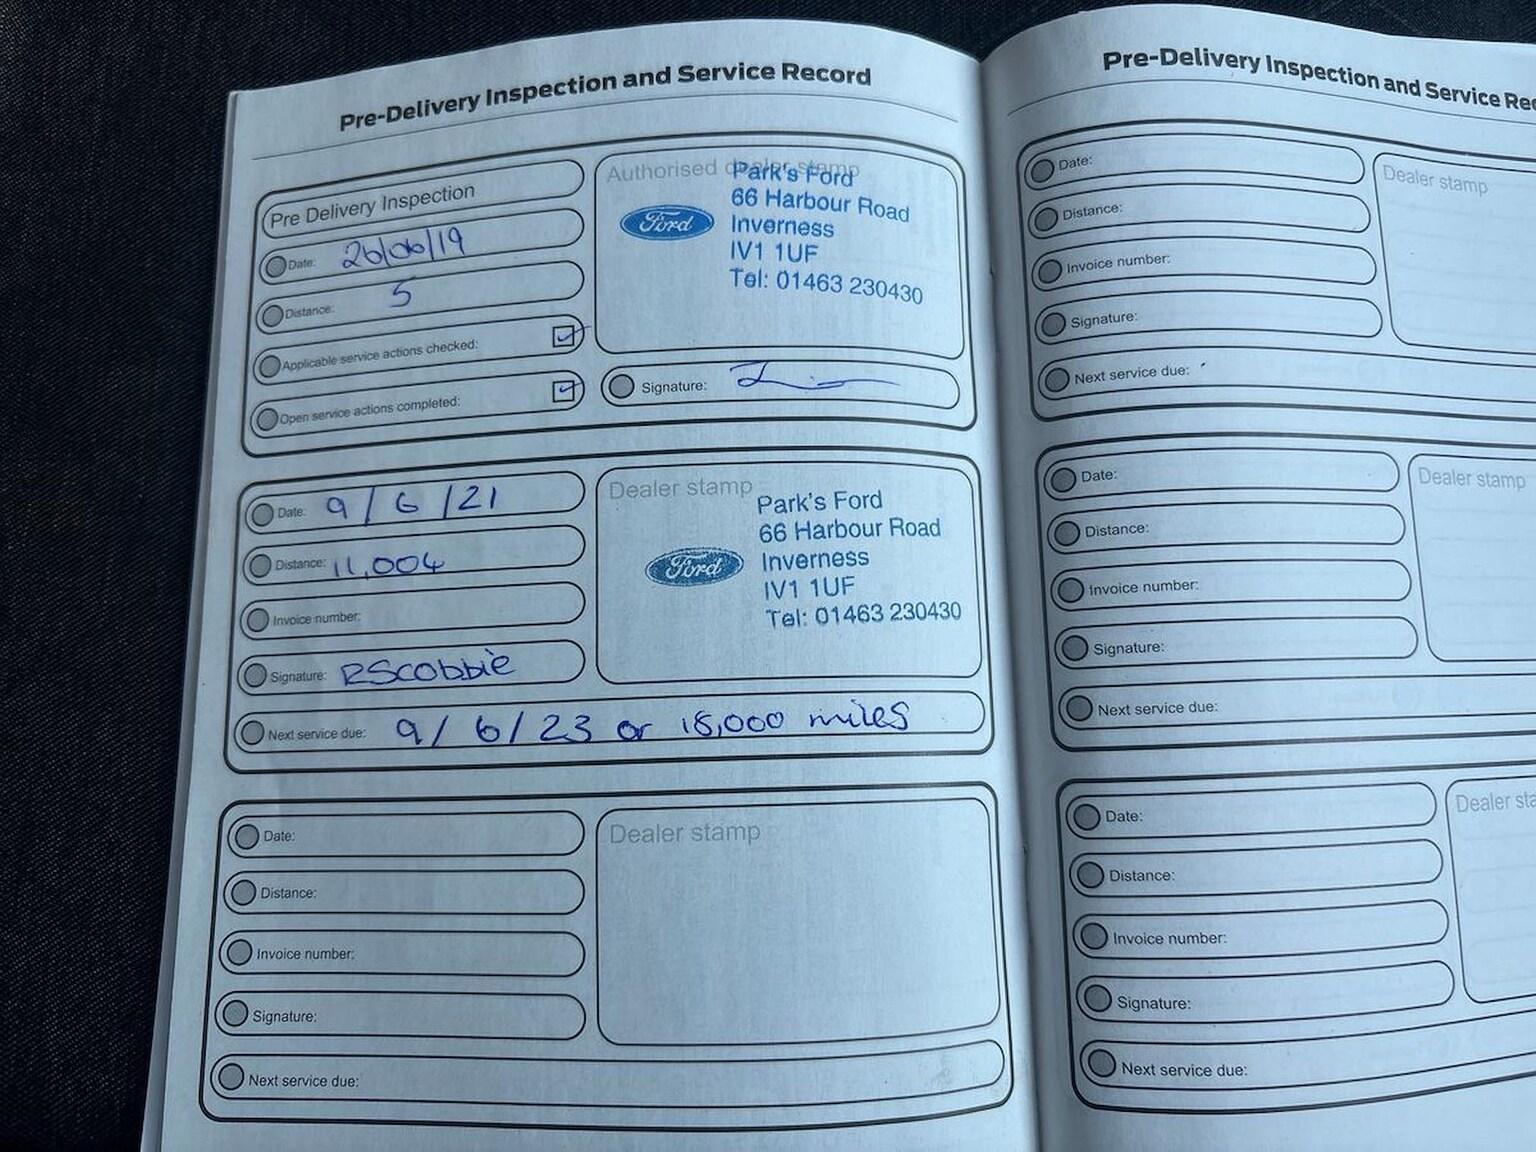 Pre-Delivery Inspection and Service Record
Pre Delivery Inspection
Date: 26/06/19
Distance: 5
Applicable service actions checked:
Open service actions completed:
Authorised dealer stamp
Ford
Park's Ford
66 Harbour Road
Inverness
IV1 1UF
Tel: 01463 230430
Signature:
Date: 9/6/21
Distance: 11,004
Invoice number:
Signature: RScobbie
Next service due: 9/6/23 or 18,000 miles
Dealer stamp
Ford
Park's Ford
66 Harbour Road
Inverness
IV1 1UF
Tel: 01463 230430
Date:
Distance:
Invoice number:
Signature:
Next service due:
Dealer stamp
Pre-Delivery Inspection and Service Rec
Date:
Distance:
Invoice number:
Signature:
Next service due:
Dealer stamp
Date:
Distance:
Invoice number:
Signature:
Next service due:
Dealer stamp
Date:
Distance:
Invoice number:
Signature:
Next service due:
Dealer sta